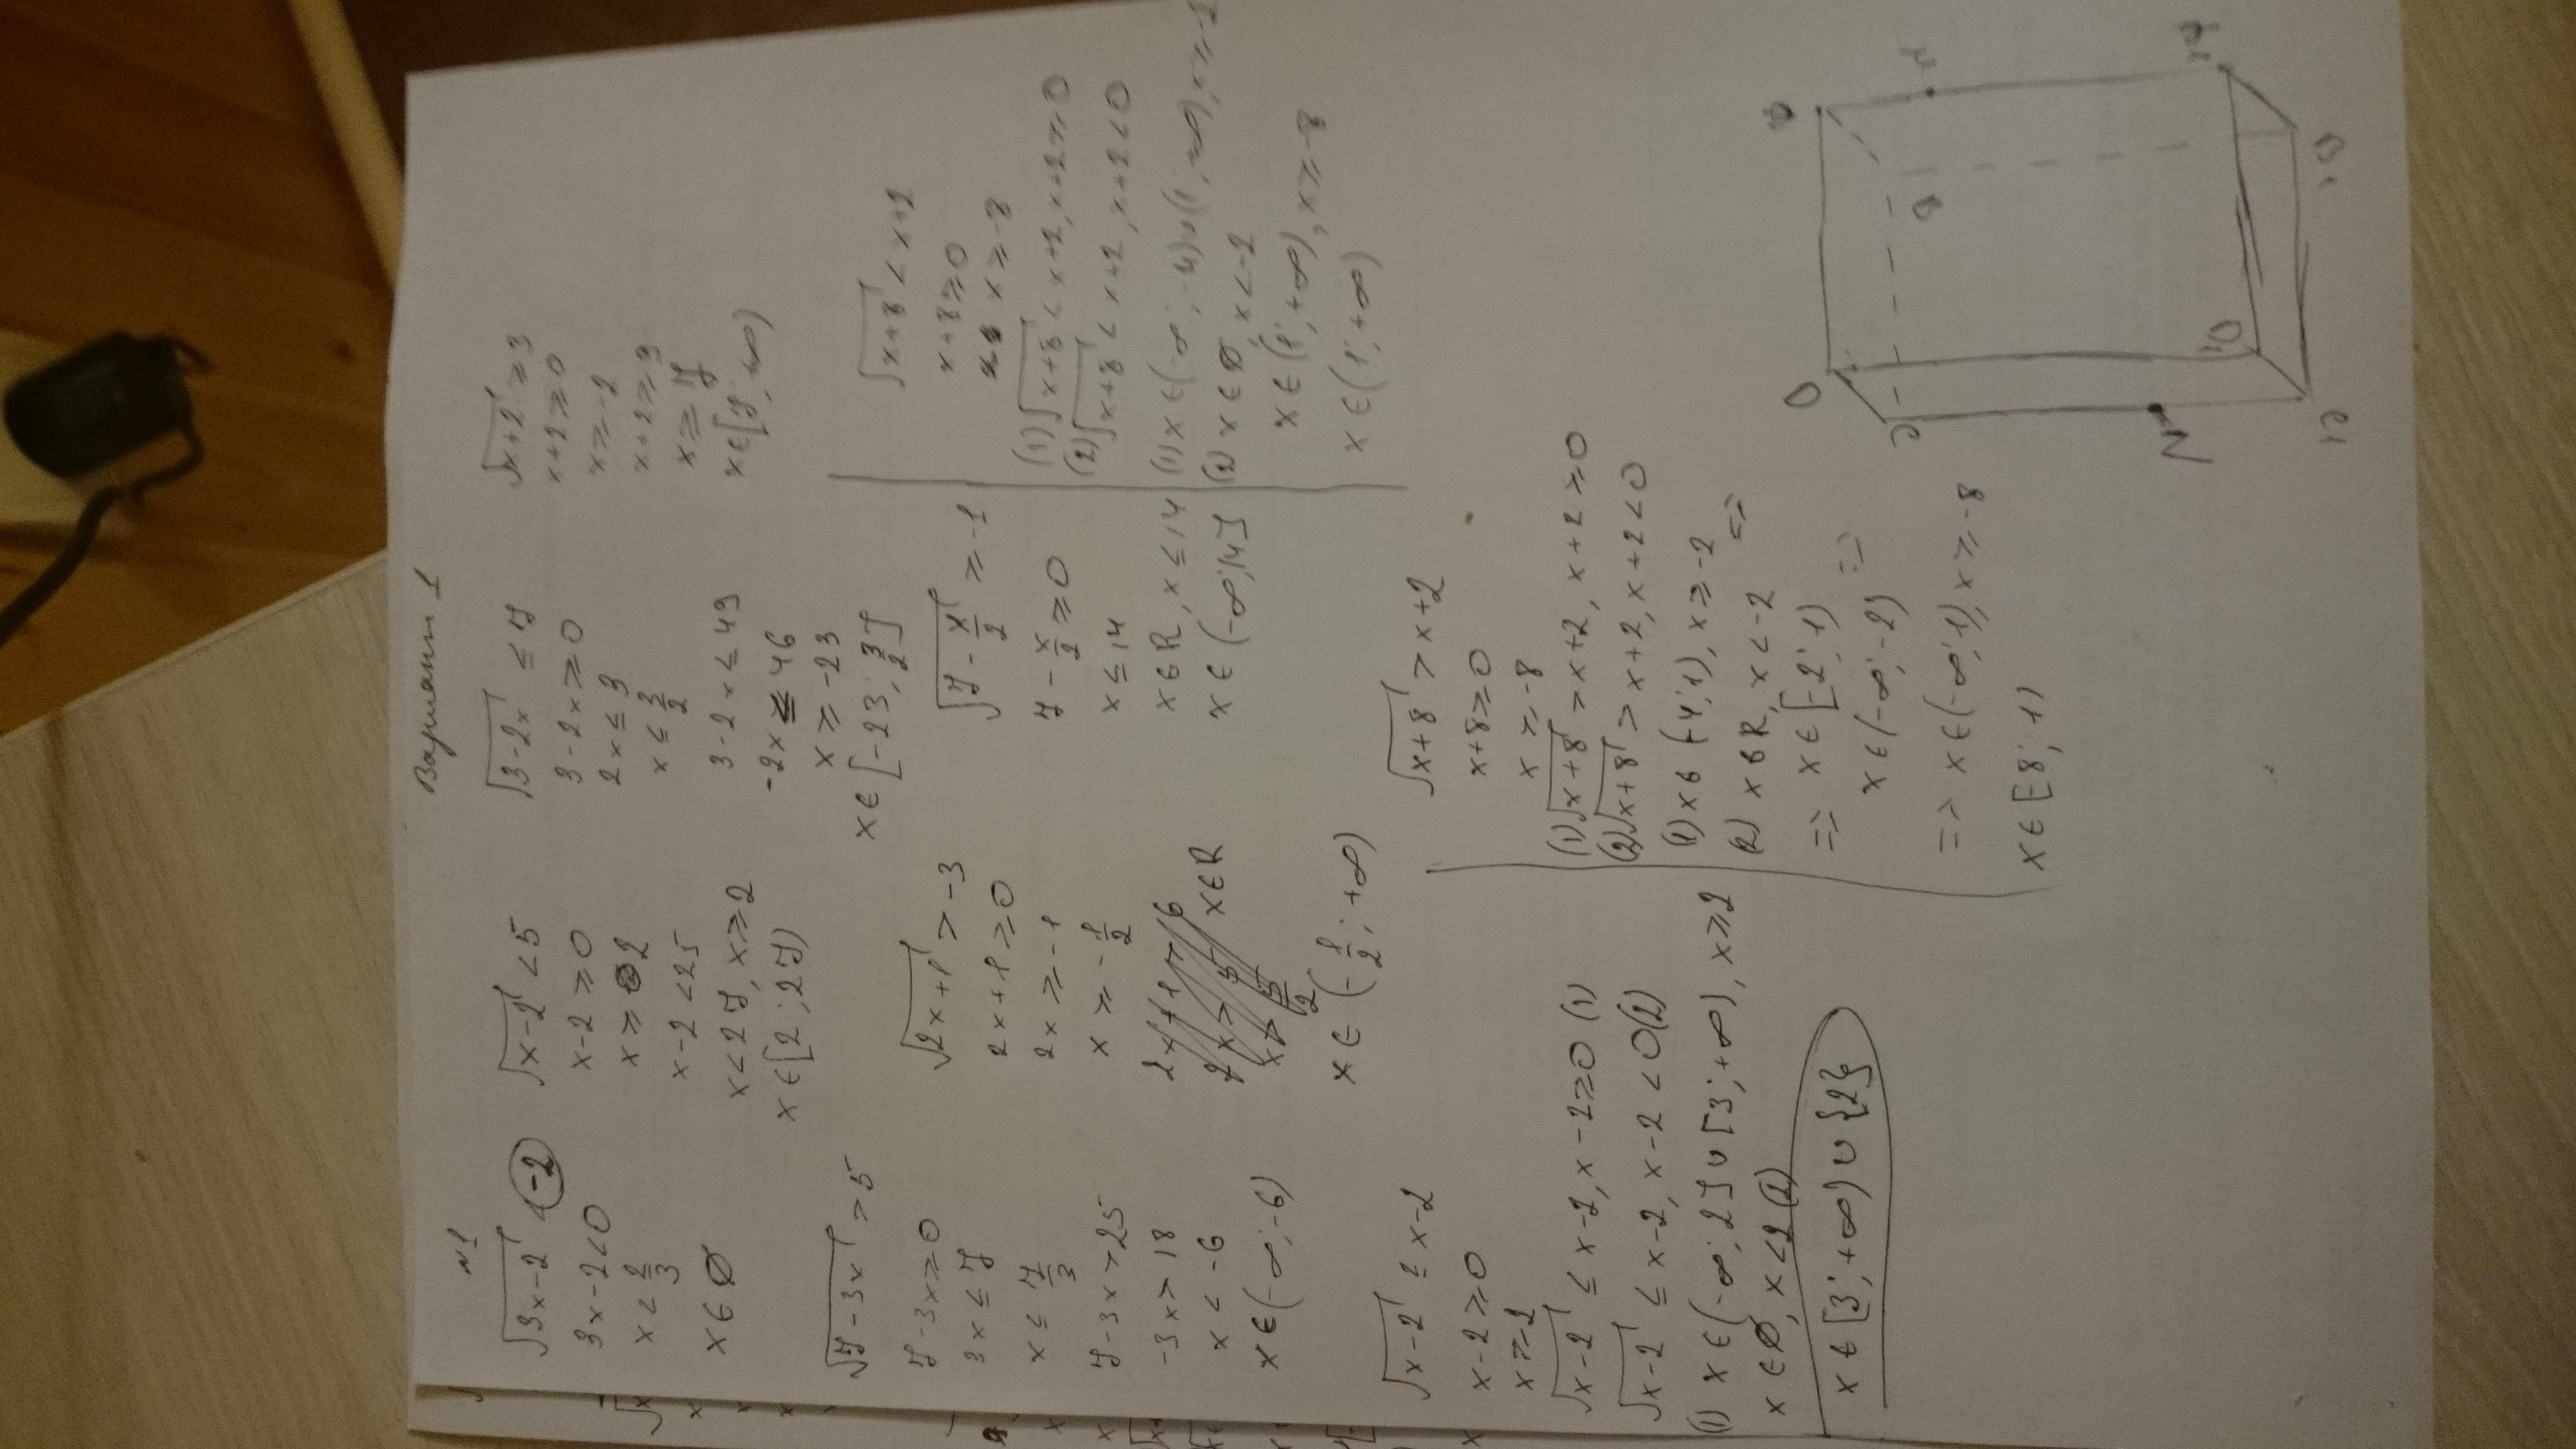 Вариант 1
№1
√(3x-2) < -2
3x-2<0
x < 2/3
x ∈ ∅
√(x-2) < 5
x-2 ≥ 0
x ≥ 2
x-2 < 25
x < 27, x ≥ 2
x ∈ [2; 27)
√(3-2x) ≤ 7
3-2x ≥ 0
2x ≤ 3
x ≤ 3/2
3-2x ≤ 49
-2x ≤ 46
x ≥ -23
x ∈ [-23; 3/2]
√(x+2) ≥ 3
x+2 ≥ 0
x ≥ -2
x+2 ≥ 9
x ≥ 7
x ∈ [7; +∞)
√(7-3x) > 5
7-3x ≥ 0
3x ≤ 7
x ≤ 7/3
7-3x > 25
-3x > 18
x < -6
x ∈ (-∞; -6)
√(2x+1) > -3
2x+1 ≥ 0
2x ≥ -1
x ≥ -1/2
x ∈ R
x ∈ (-1/2; +∞)
√(7-x/2) ≥ -1
7 - x/2 ≥ 0
x ≤ 14
x ∈ R, x ≤ 14
x ∈ (-∞; 14]
√(x+8) < x+2
x+8 ≥ 0
x ≥ -8
(1) √(x+8) < x+2, x+2 ≥ 0
(2) √(x+8) < x+2, x+2 < 0
(1) x ∈ (-∞; -4) ∪ (1; +∞), x ≥ -2
(2) x ∈ ∅, x < -2
x ∈ (1; +∞), x ≥ -8
x ∈ (1; +∞)
√(x-2) ≤ x-2
x-2 ≥ 0
x ≥ 2
√(x-2) ≤ x-2, x-2 ≥ 0 (1)
√(x-2) ≤ x-2, x-2 < 0 (2)
(1) x ∈ (-∞; 2] ∪ [3; +∞), x ≥ 2
x ∈ ∅, x < 2 (2)
x ∈ [3; +∞) ∪ {2}
√(x+8) > x+2
x+8 ≥ 0
x ≥ -8
(1) √(x+8) > x+2, x+2 ≥ 0
(2) √(x+8) > x+2, x+2 < 0
(1) x ∈ (-4; 1), x ≥ -2
(2) x ∈ R, x < -2 =>
=> x ∈ [-2; 1)
x ∈ (-∞; -2) =>
=> x ∈ (-∞; 1), x ≥ -8
x ∈ [-8; 1)
D
C
N